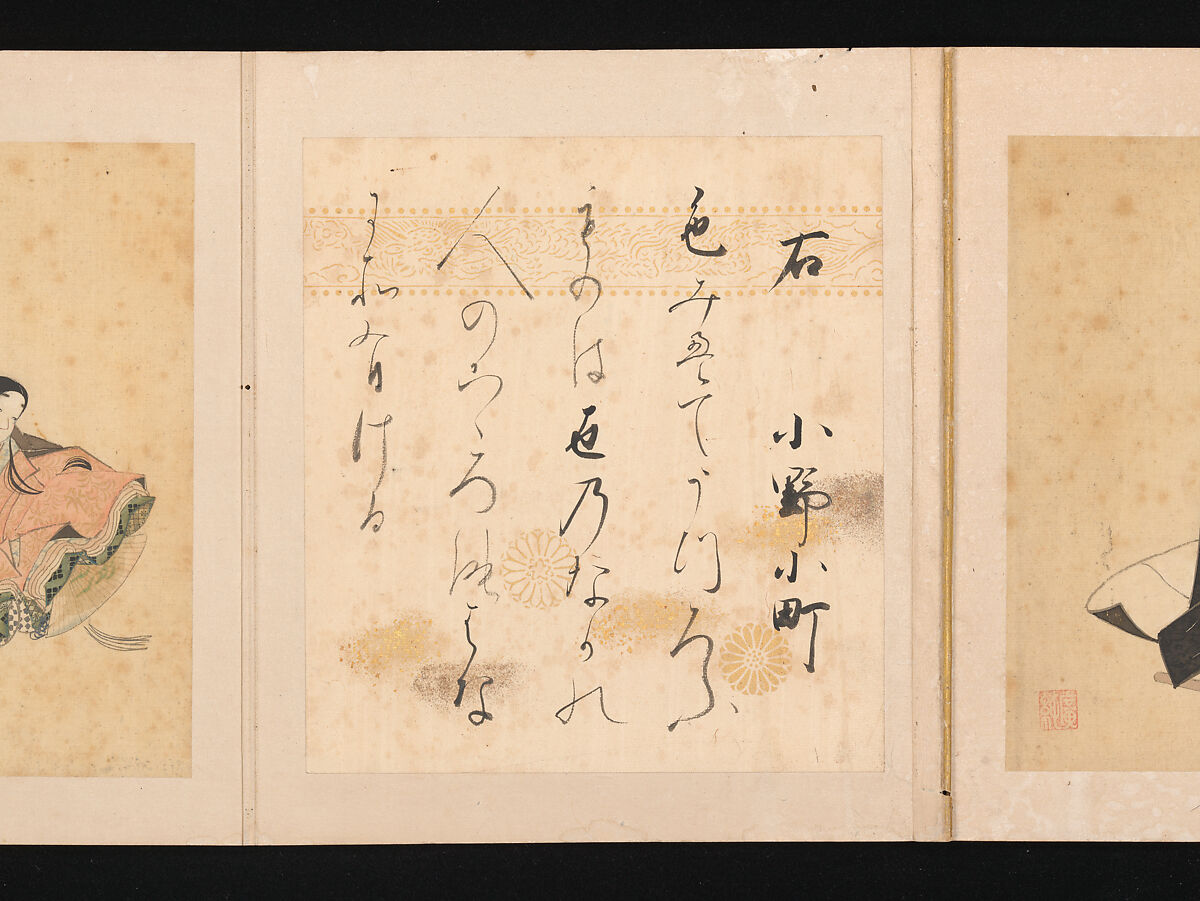 右　小野小町
色みえてうつろふ
ものは世乃なかの
人のこゝろ能はな
にそ有ける